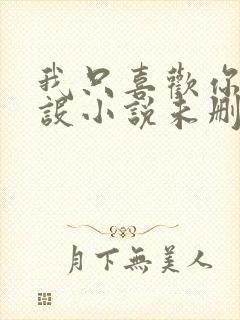 我只喜歡你
設小說未刪
月下無美人